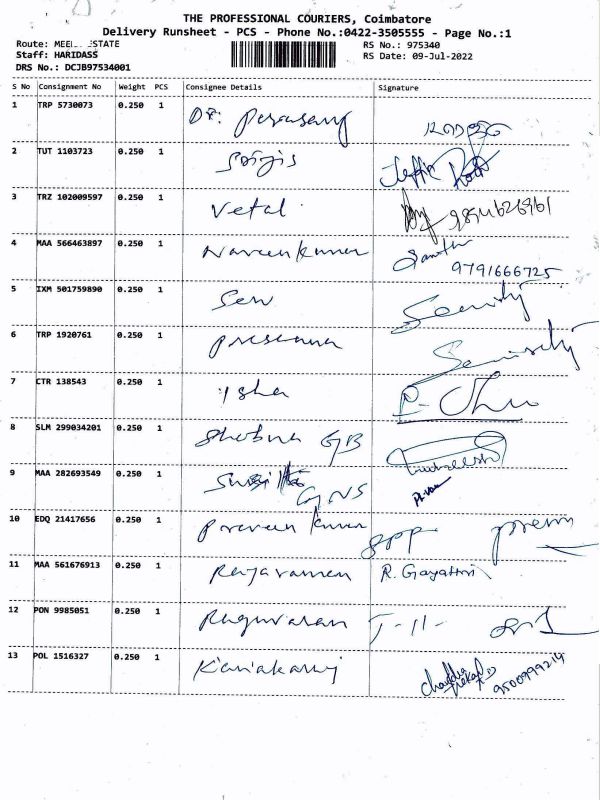 THE PROFESSIONAL COURIERS, Coimbatore
Delivery Runsheet - PCS - Phone No.:0422-3505555 - Page No.:1
Route: ESTATE RS No.: 975340
Staff: HARIDASS RS Date: 09-Jul-2022
DRS No.: DCJB97534001
S No Consignment No Weight PCS Consignee Details Signature
1 TRP 5730073 0.250 1 Dr:
2 TUT 1103723 0.250 1
3 TRZ 102009597 0.250 1 Vetal
4 MAA 566463897 0.250 1 Naveenkumar 9791666725
5 IXM 501759890 0.250 1 Sen
6 TRP 1920761 0.250 1 Presanna
7 CTR 138543 0.250 1 Isha
8 SLM 299034201 0.250 1 Shobna GB
9 MAA 282693549 0.250 1 GNS
10 EDQ 21417656 0.250 1 Praveen kumar prem
11 MAA 561676913 0.250 1 Rajaraman R. Gayathri
12 PON 9985051 0.250 1 Raguvaran
13 POL 1516327 0.250 1 9500999214